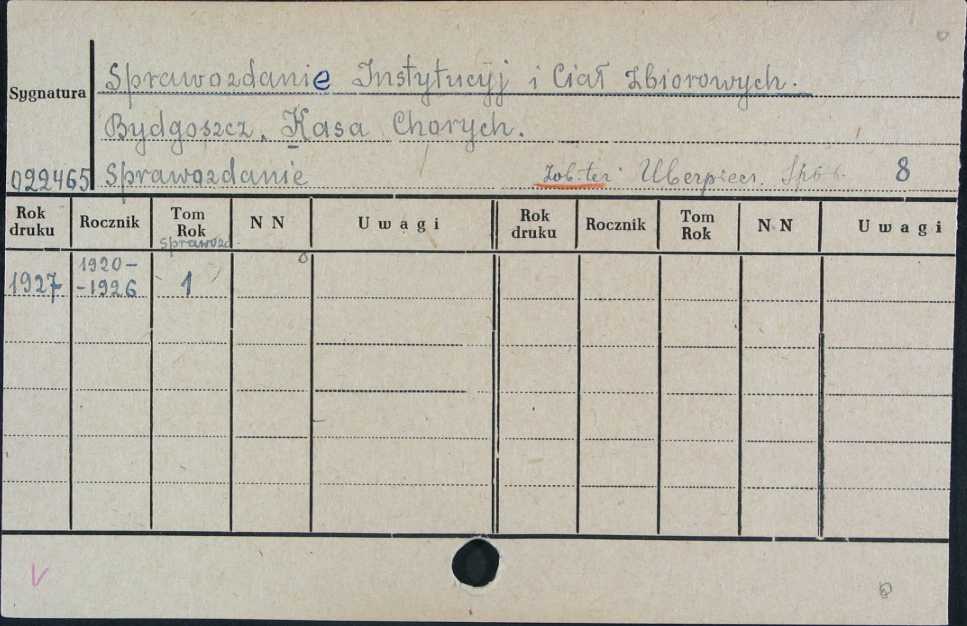 Sprawozdanie Instytucyj i Ciał Zbiorowych.
Sygnatura
Bydgoszcz. Kasa Chorych.
022465 Sprawozdanie Ubezpiecz. 8
Rok druku Rocznik Tom Rok sprawozd. N N Uwagi Rok druku Rocznik Tom Rok N N Uwagi
1927 1920-
-1926 1
V